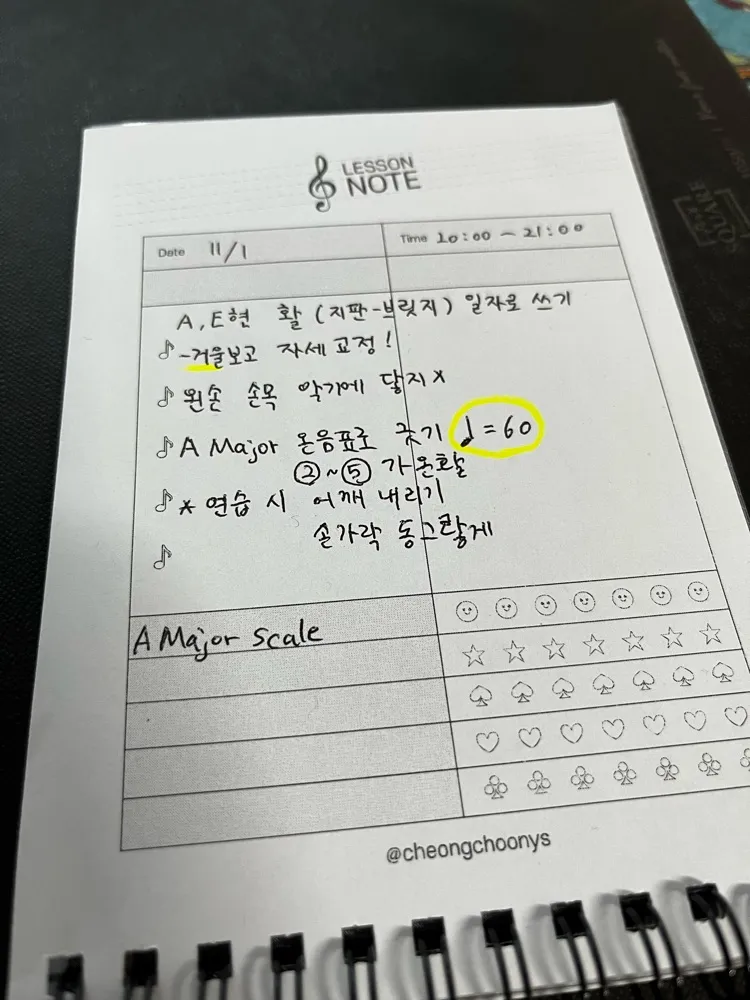 LESSON
NOTE
Date 11/1
Time 20:00 ~ 21:00
A, E현 활 (지판-브릿지) 일자로 쓰기
-거울보고 자세 교정!
왼손 손목 악기에 닿지 X
A Major 온음표로 긋기 ♩=60
②~⑤ 가운화살
* 연습 시 어깨 내리기
손가락 동그랗게
A Major scale
@cheongchoonys